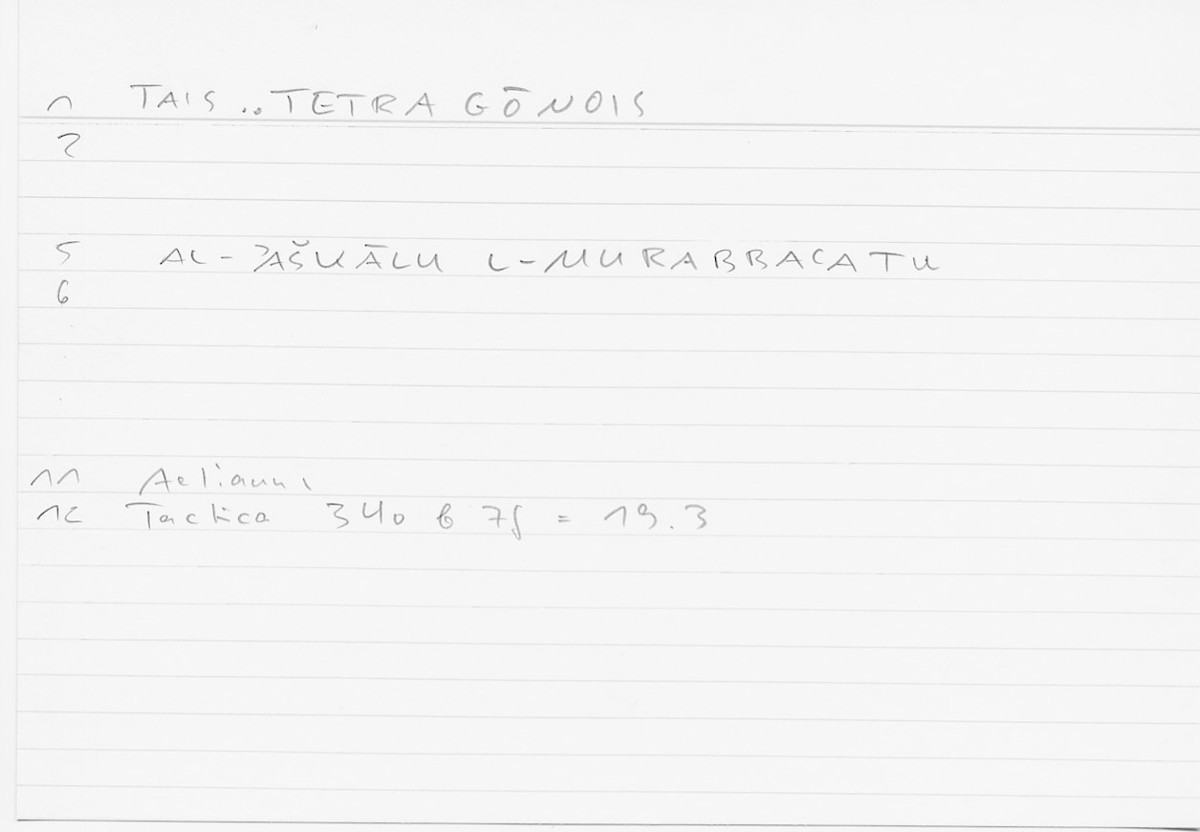 1 TAIS .. TETRAGŌNOIS
2
5 AL-ʾAŠKĀLU L-MURABBAʿATU
6
11 Aeliani
12 Tactica 340 b 7f = 19.3